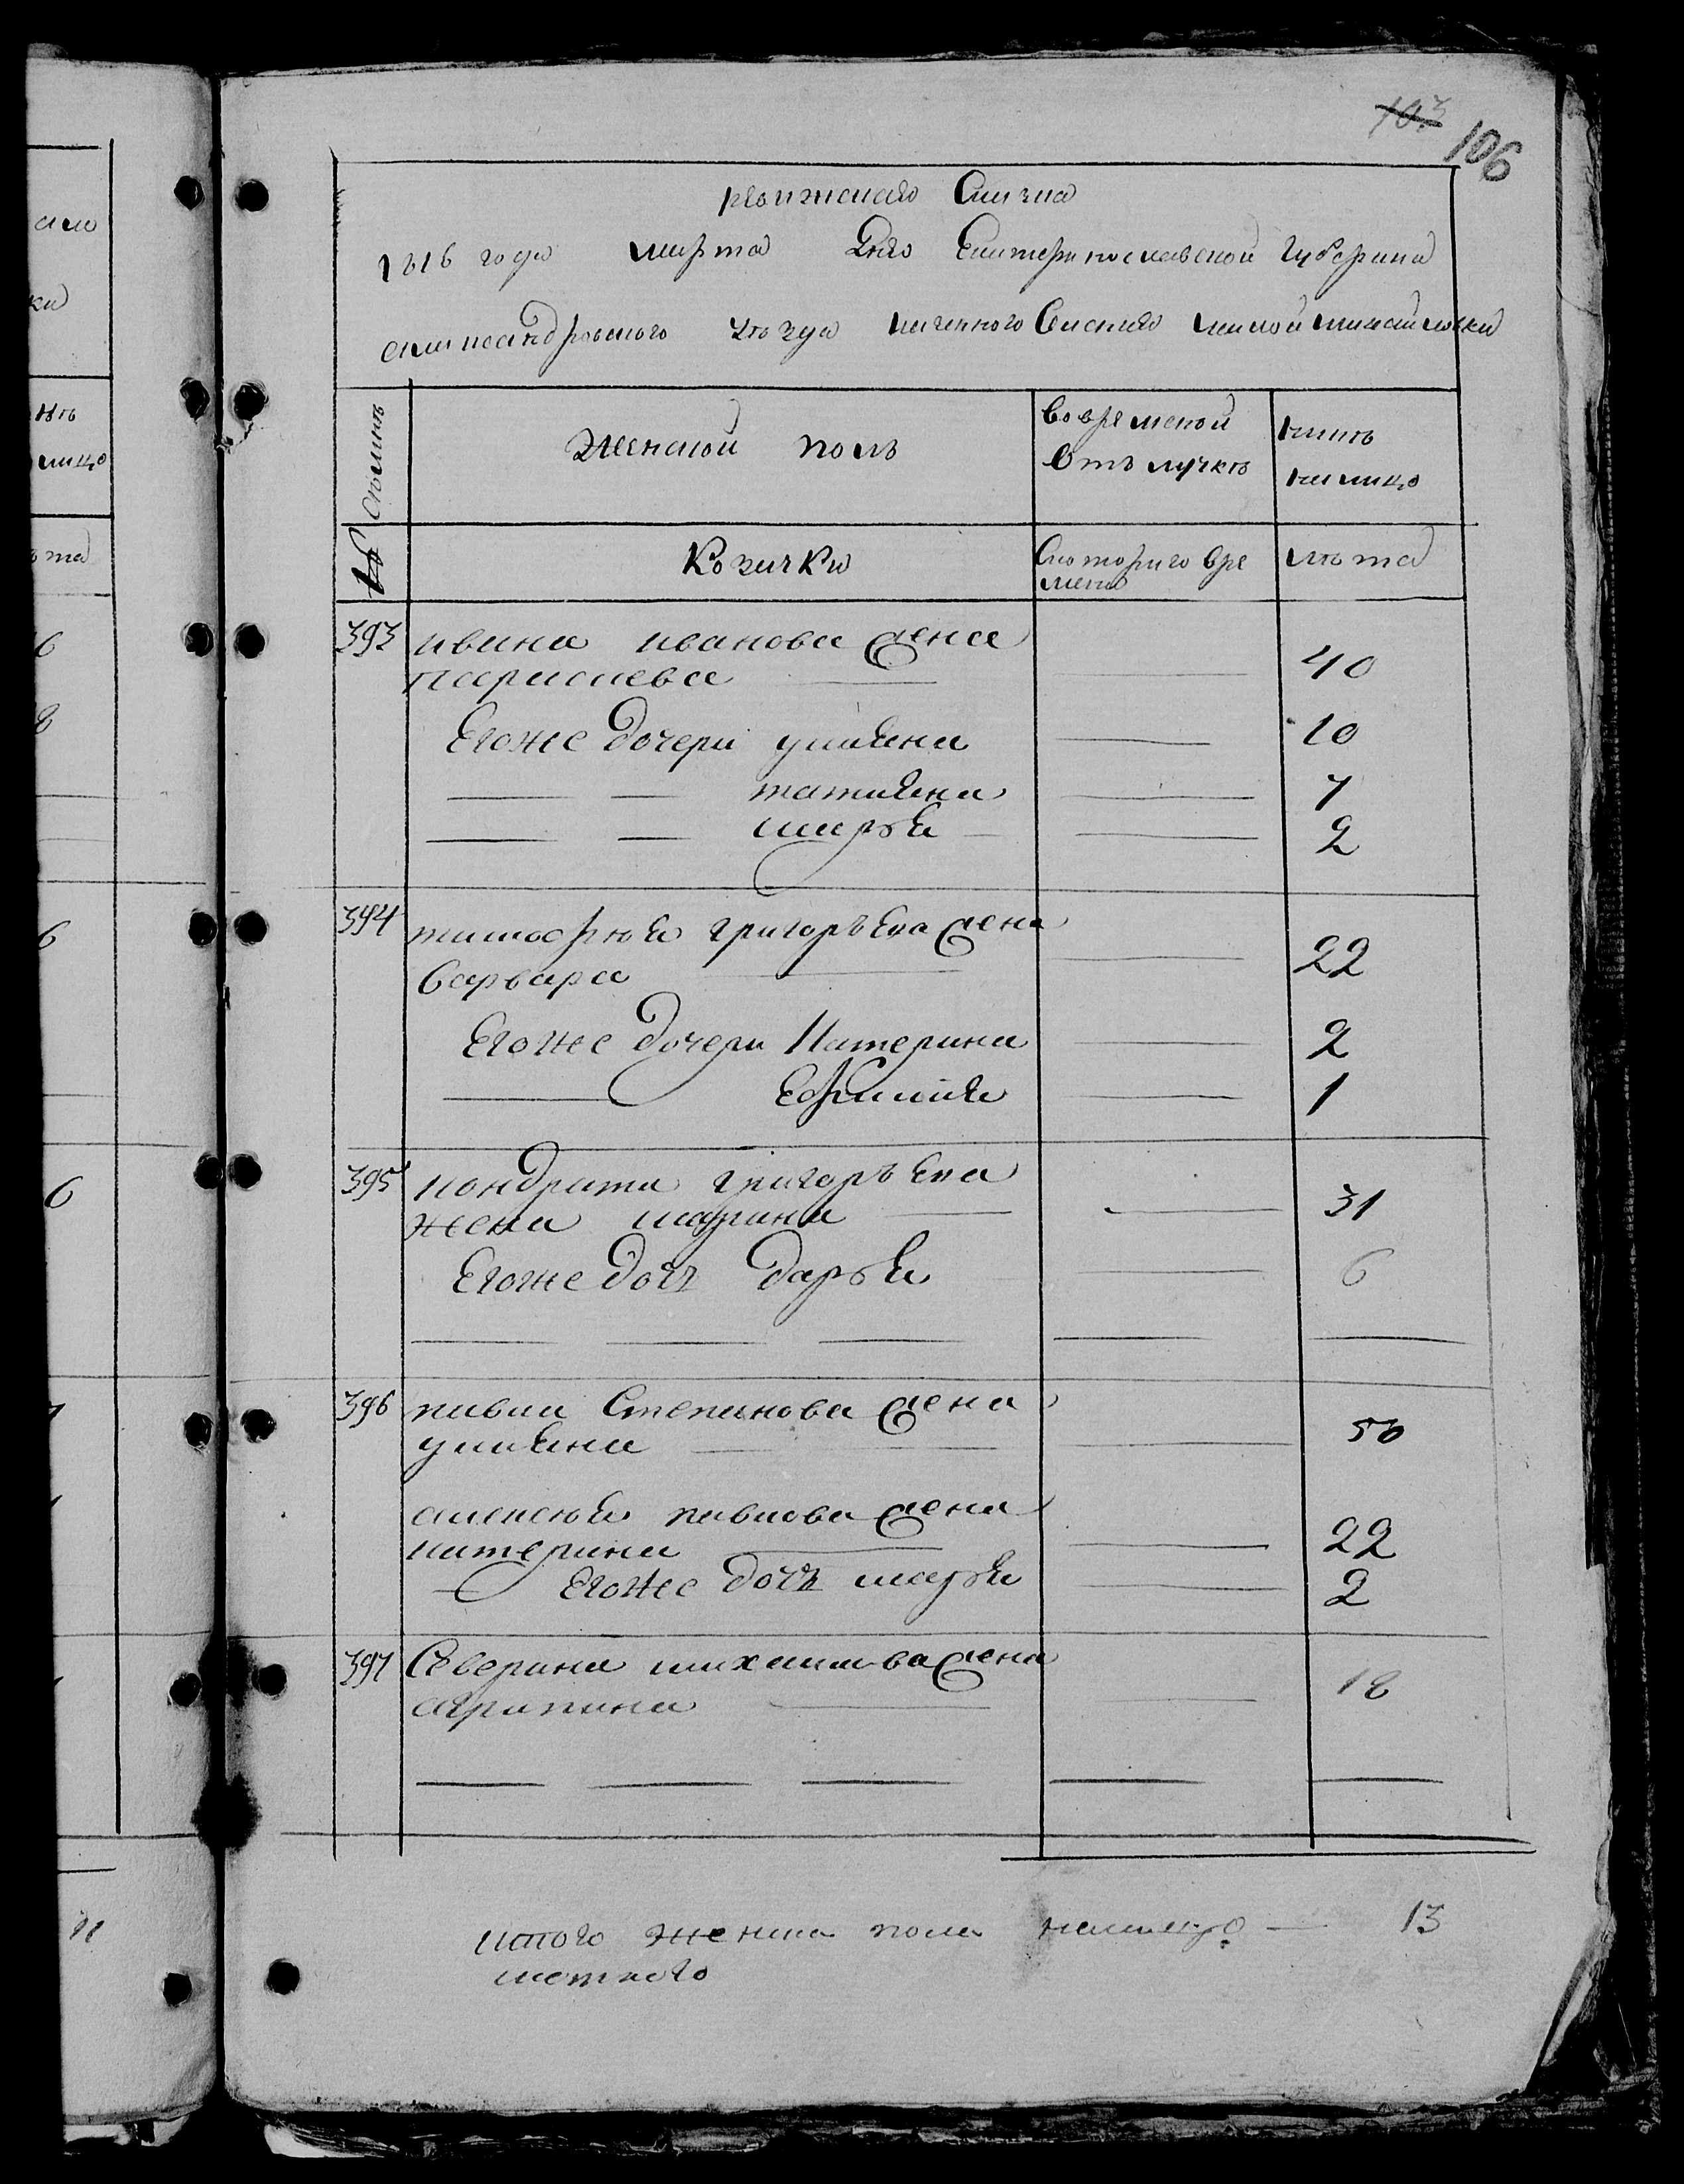 103 106
ревижская Скаска
1816 года марта дня Екатеринославской Губернии
александровского уѣзда казенного Селения малой михайловки
Семьи
Женской полъ
Вовременой
Отълучкѣ
Нынѣ
налицо
№
Козачки
Скоторого вре
мени
лѣта
393 ивана иванова жена
параскева 40
Егоже дочери улияна 10
татияна 7
марья 2
394 тимофѣя григорьева жена
варвара 22
Егоже дочери Катерина 2
Ефимия 1
395 кондрата григорьева
жена марина 31
Егоже дочь дарья 6
396 павла Степанова жена
улияна 50
алексѣя павлова жена
катерина 22
Егоже дочь марья 2
397 Северина михаилова жена
агрипина 18
итого женска пола налицо 13